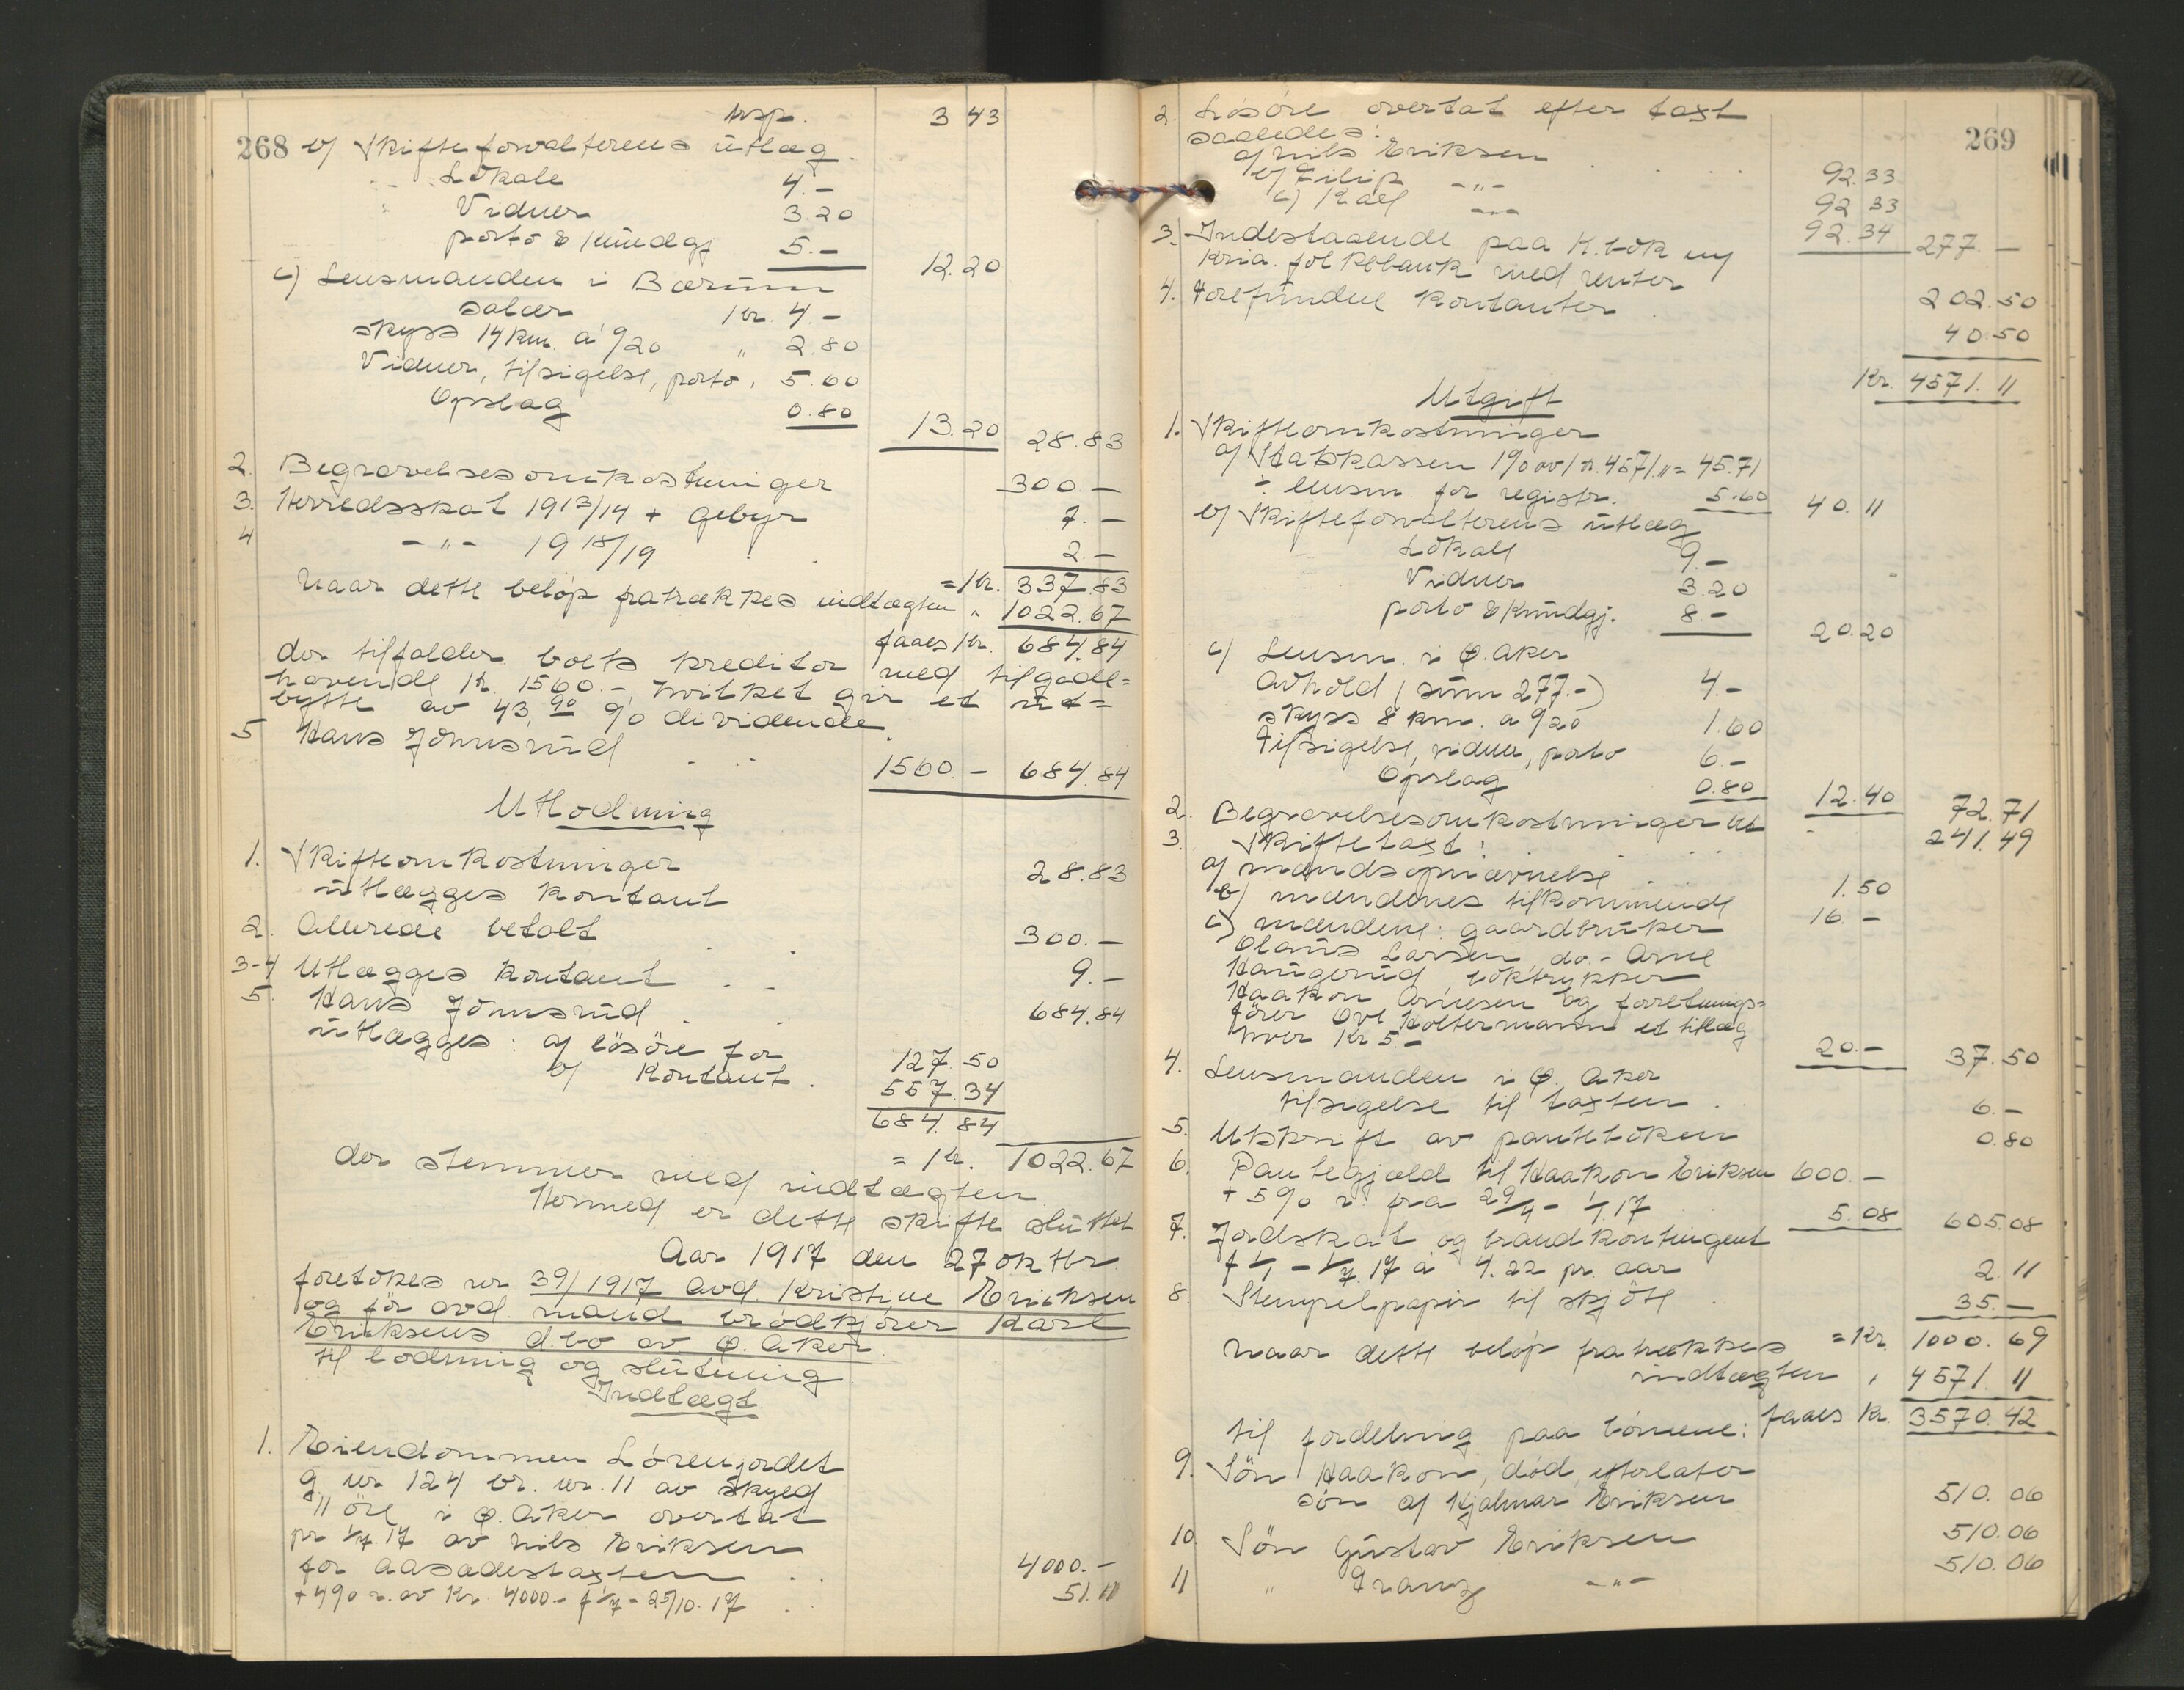 268
trsp. 3 43
b) Skifteforvalterens utlæg
Lokale 4.-
Vidner 3.20
porto & kundgj 5.- 12.20
c) Lensmanden i Bærum
salær kr. 4.-
skyss 14 km. a 0/20 " 2.80
Vidner, tilsigelse, porto, 5.60
Opslag 0.80 13.20 28.83
2. Begravelsesomkostninger 300.-
3. Herredsskat 1913/14 + gebyr 7.-
4 -"- 1918/19 2.-
=kr. 337.83
Naar dette beløp fratrækkes indtægten " 1022.67
faaes kr. 684.84
der tilfalder boets kreditor med tilgode=
havende kr. 1560.-, hvilket gir et ut=
bytte av 43,90 % dividende.
5 Hans Jonsrud 1560.- 684.84
Utlodning
1. Skifteomkostninger 28.83
utlægges kontant
2. Allerede betalt 300.-
3-4 Utlægges kontant 9.-
5. Hans Jonsrud 684.84
utlægges: a) løsøre for 127.50
b) kontant 557.34
684.84
= kr. 1022.67
der stemmer med indtægten
Hermed er dette skifte sluttet
Aar 1917 den 27 oktbr
foretokes nr 39/1917 avd. Kristine Eriksen
og før avd. mand brødkjører Karl
Eriksens d.bo av Ø. Aker
til lodning og slutning
Indtægt.
1. Eiendommen Lørenjordet
g. nr 124 br. nr. 11 av skyld
11 øre i Ø. Aker overtat
pr 1/7.17 av Nils Eriksen
for aasædestaxten 4000.-
+ 4% r. av Kr. 4000.- f 1/7 - 25/10. 17 51.11
269
2. Løsøre overtat efter taxt
saaledes:
a) Nils Eriksen 92.33
b) Filip -"- 92 33
c) Karl -"- 92.34 277.-
3. Indestaaende paa K.bok nr
Kria. folkebank med renter 202.50
4. Forefundne kontanter 40.50
Kr. 4571.11
Utgift
1. Skifteomkostninger
a) Statskassen 1% av kr. 4571.11 = 45.71
÷ lensm. for registr. 5.60 40.11
b) Skifteforvalterens utlæg
Lokale 9.-
Vidner 3.20
porto & kundgj. 8- 20.20
c) Lensm. i Ø. Aker
avhold (sum 277.-) 4.-
skyss 8 km. a 0/20 1.60
Tilsigelse, vidner, porto 6.-
Opslag 0.80 12.40 72.71
2. Begravelsesomkostninger 241.49
3. Skiftetaxt:
a) mandsopnævnelse 1.50
b) mændenes tilkommende 16.-
c) mændene: gaardbruker
Olaus Larsen, do.- Arne
Haugerud, boktrykker
Haakon Arnesen og forretnings=
fører Ove Holtermann et tillæg
hver Kr 5.- 20.- 37.50
4. Lensmanden i Ø. Aker
tilsigelse til taxten 6.-
5. Utskrift av panteboken 0.80
6. Pantegjæld til Haakon Eriksen 600.-
+ 5% r. fra 29/4 - 1/7.17 5.08 605.08
7. Jordskat og brandkontingent
f 1/1 - 1/7.17 a 4.22 pr. aar 2.11
8. Stempelpapir til skjøte 35.-
=Kr. 1000.69
Naar dette beløp fratrækkes
indtægten , 4571.11
faaes Kr. 3570.42
til fordeling paa børnene:
9. Søn Haakon, død, efterlater
søn a) Hjalmar Eriksen 510.06
10. Søn Gustav Eriksen 510.06
11 " Franz -"- 510.06